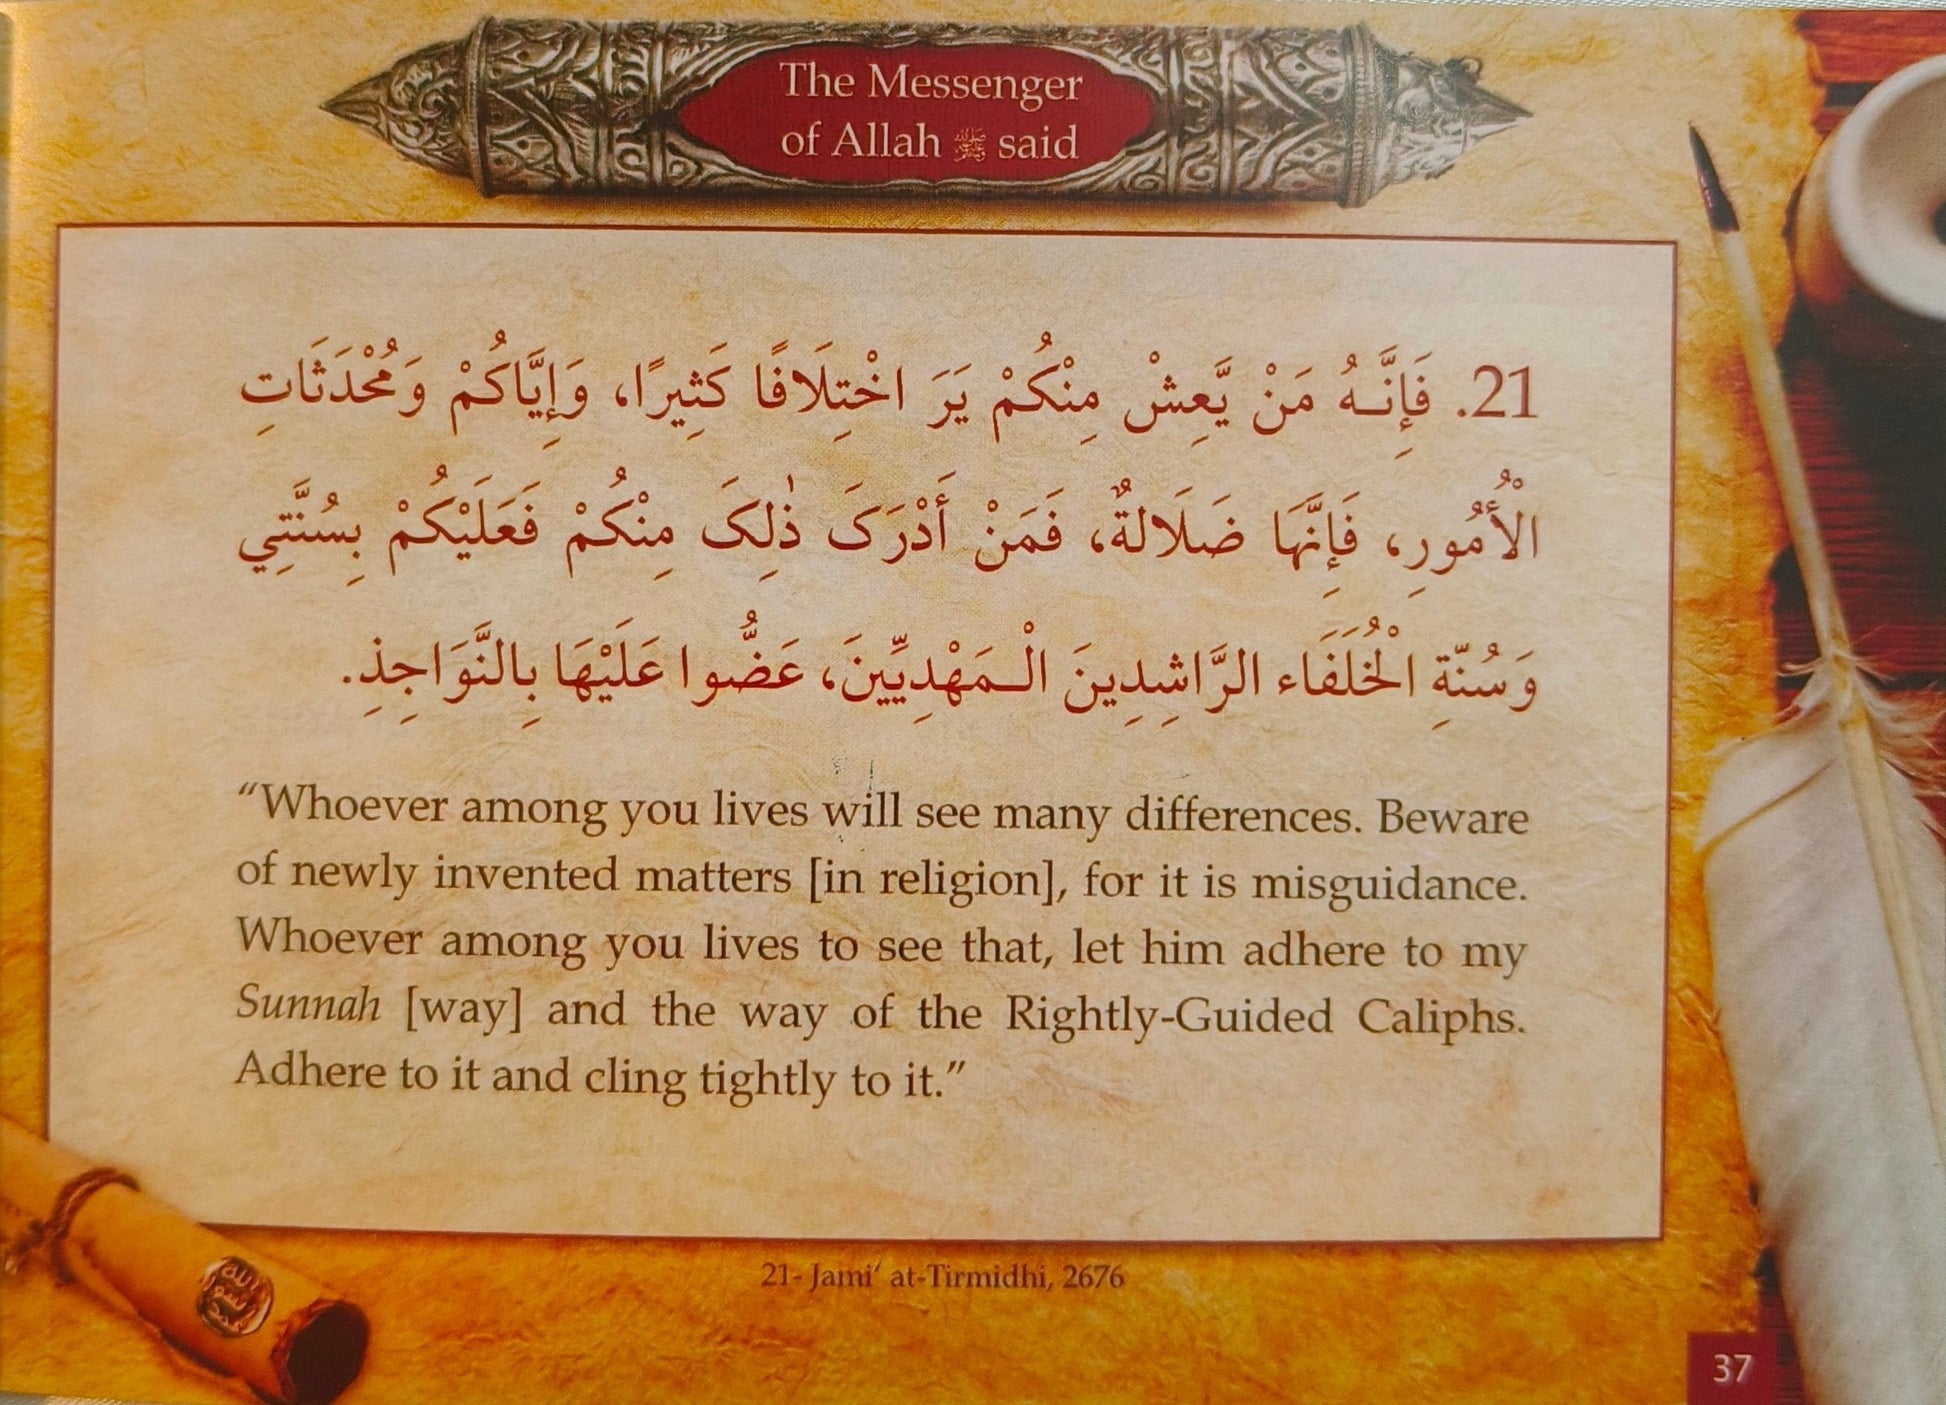 The Messenger
of Allah ﷺ said
21. فَإِنَّـهُ مَنْ يَّعِشْ مِنْكُمْ يَرَ اخْتِلَافًا كَثِيرًا، وَإِيَّاكُمْ وَمُحْدَثَاتِ
الْأُمُورِ، فَإِنَّهَا ضَلَالةٌ، فَمَنْ أَدْرَكَ ذٰلِكَ مِنْكُمْ فَعَلَيْكُمْ بِسُنَّتِي
وَسُنّةِ الْخُلَفَاء الرَّاشِدِينَ الْـمَهْدِيِّينَ، عَضُّوا عَلَيْهَا بِالنَّوَاجِذِ.
“Whoever among you lives will see many differences. Beware
of newly invented matters [in religion], for it is misguidance.
Whoever among you lives to see that, let him adhere to my
Sunnah [way] and the way of the Rightly-Guided Caliphs.
Adhere to it and cling tightly to it.”
21- Jami‘ at-Tirmidhi, 2676
37